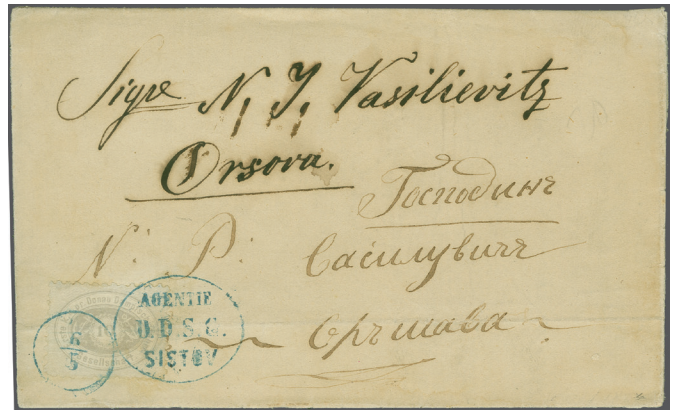 Sigre N. J. Vasilievitz
Orsova.
Господинъ
N: P: Василувичъ
Оръшава
AGENTIE
D.D.S.G.
SISTOV
6
5